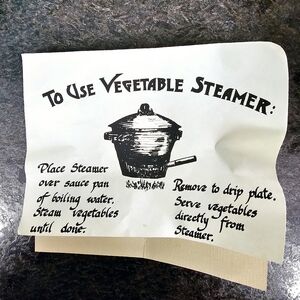 To Use Vegetable Steamer:
Place Steamer
over sauce pan
of boiling water.
Steam vegetables
until done.
Remove to drip plate.
Serve vegetables
directly from
Steamer.